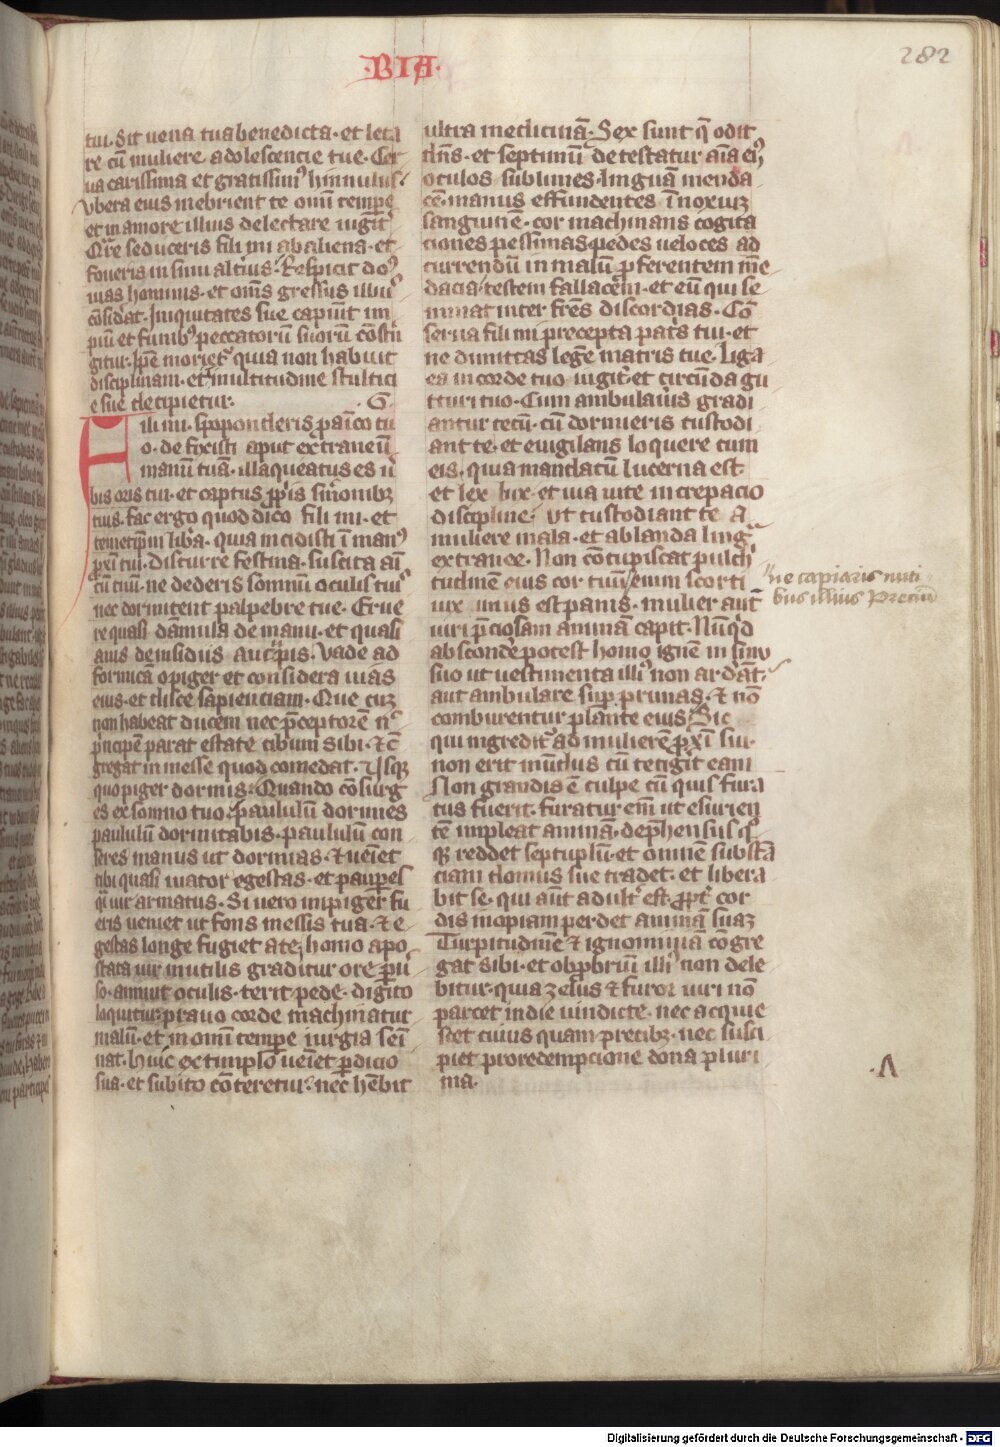 ·BIA·
282
tui. Sit uena tua benedicta· et leta
re cū muliere adolescencie tue· Cer
ua carissima et gratissimꝰ hinnulus·
vbera eius inebrient te omī tempe
et in amore illius delectare iugit᷑
Qͣre seduceris fili mi ab aliena· et
foueris in sinu alt̾ius· Respicit dōs
uias hominis· et om̄s gressus illiꝰ
cōsid̾at· Iniquitates sue capiūt im
piū et funibꝰ peccatorū suorū cōstri
gitur· Ip̄e moriet᷑ quia non habuit
disciplinam· et multitudine stultici
e sue decipietur· ·G·
Fili mi· spoponderis p̱ amico tu
o· de fixisti aput extraneū
manū tuā· illaqueatus es ū
bis oris tui· et captus ꝓp̄is sermonibꝫ
tuis· fac ergo quod dico fili mi· et
temetip̄m lib̾a· quia incidisti ī manꝰ
ꝓxi tui· discurre festina· suscita ami
cū tuū· ne dederis somnū oculis tuis
nec dormitent palpebre tue· Erue
re quasi dāmula de manu· et quasi
auis de insidiis aucupis· Vade ad
formicā o piger et considera uias
eius· et disce sapienciam· Que cū
non habeat ducem nec p̄ceptorē nͨ
pͥncipem parat estate cibum sibi· ⁊ cō
gregat in messe quod comedat· Usqꝫ
quo piger dormis· Quando cōsurg
es ex somno tuo· paululū dormies
paululū dormitabis· paululū con
seres manus ut dormias· ⁊ ueīet
tibi quasi uiator egestas· et paup̱es
qͣ uir armatus· Si uero impiger fu
eris ueniet ut fons messis tua· ⁊ e
gestas longe fugiet a te· homo apo
stata uir inutilis graditur ore p̱u̾
so· annuit oculis· terit pede· digito
loquitur· prauo corde machinatur
malū· et in omī tempe iurgia semi
nat· huic extimplo ueīet p̱dicio
sua· et subito cōteretur· nec h̄ebit
ultra medicinā· Sex sunt q̄ odit
dn̄s· et septimū detestatur aīa eiꝰ
oculos sublimes· linguā menda
cē· manus effundentes īnoxiū
sanguinē· cor machinans cogita
ciones pessimas· pedes ueloces ad
currendū in malū· p̱ferentem mē
dacia· testem fallacem· et eū qui se
minat inter fr̄es discordias· Cō
serua fili mi precepta patͥs tui· et
ne dimittas legē matris tue· Liga
ea in corde tuo iugit᷑· et circūda gu
tturi tuo· Cum ambulauͥs gradi
antur tecū· cū dormieris custodi
ant te· et euigilans loquere cum
eis· quia mandatū lucerna est
et lex lux· et uia uite increpacio
discipline· ut custodiant te a
muliere mala· et a blanda ling̾
extranee· Non cōcupiscat pulch̾
tudinē eius cor tuū enim scorti
uix unius est panis· mulier aut̄
uiri p̄ciosam animā capit· Nūqͥd
abscondͤe potest homo ignē in sinu
suo ut uestimenta illiꝰ non ardāt·
aut ambulare sup̱ prunas· ⁊ nō
comburentur plante eius· Sic
qui ingredit᷑ ad mulierē ꝓxi sui·
non erit mūdus cū tetigͥt eam
Non grandis ē culpe cū quis fura
tus fuerit· furatur em̄ ut esurien
tē impleat animā· dep̄hensus qͦ
qꝫ reddet septuplū· et omnē substā
ciam domus sue tradet· et libera
bit se· qui aūt adult̾ est· ꝓpt̾ cor
dis inopiam perdet animā suā
Turpitudinē ⁊ ignominiā cōgre
gat sibi· et obprobriū illiꝰ non dele
bitur· quia zelus ⁊ furor uiri nō
parcet in die uindicte· nec acquie
scet cuius quam precibꝫ· nec susci
piet pro redempcione dona pluri
ma·
ne capiaris nuti
bus illius Precium